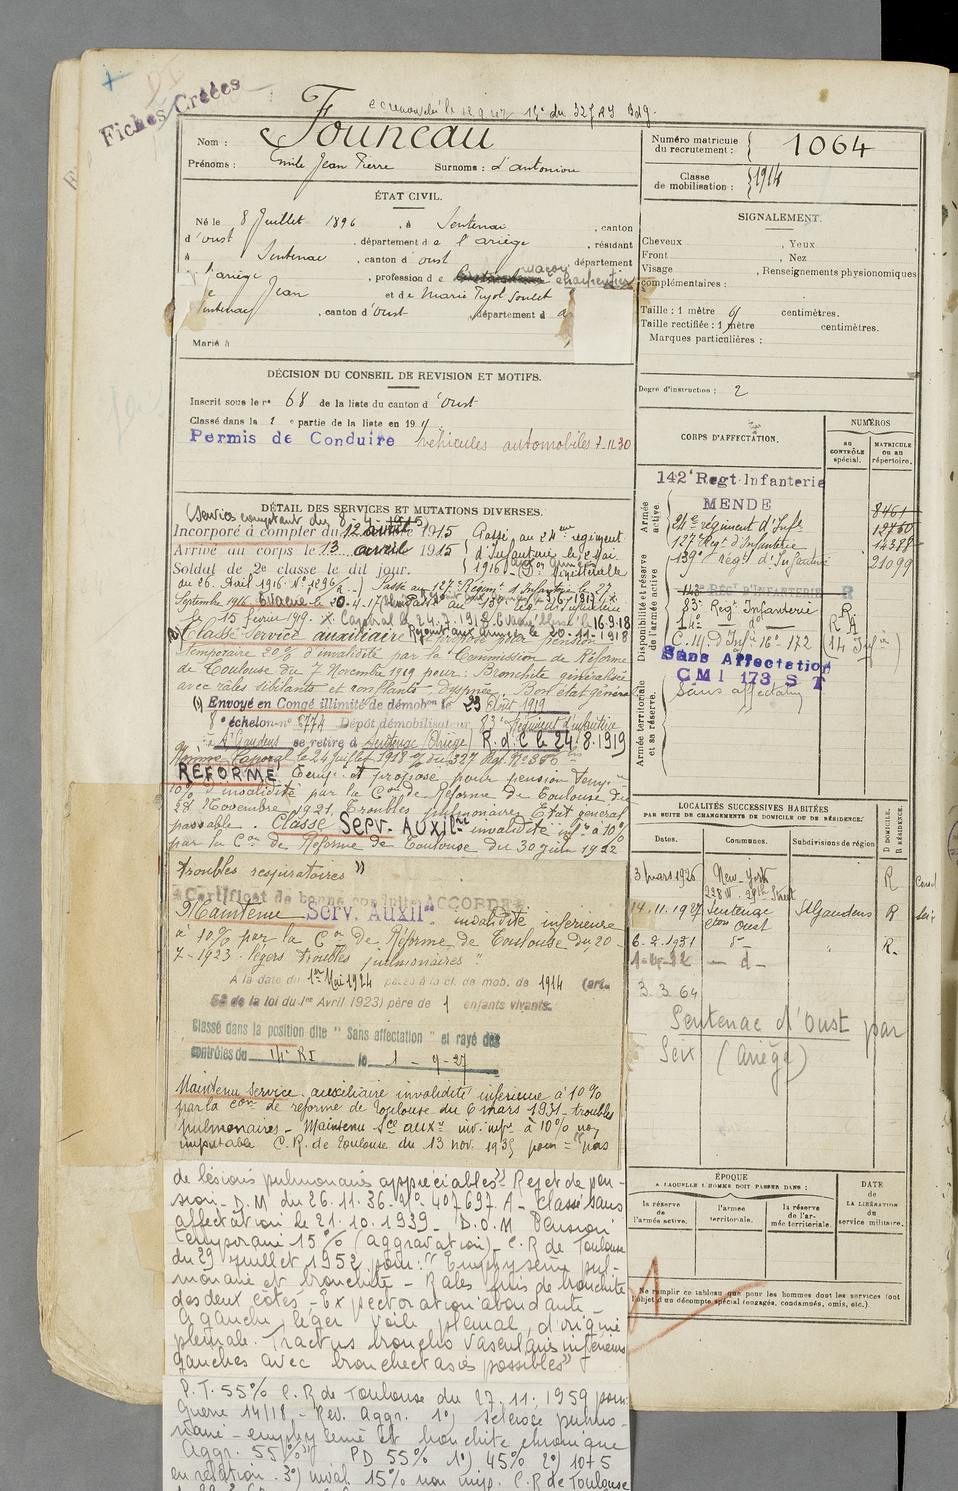 Fiches Créées
Nom : Founeau
Numéro matricule du recrutement : 1064
Prénoms : Emile Jean Pierre Surnoms : d'antonion
Classe de mobilisation : 1914
ÉTAT CIVIL.
Né le 8 Juillet 1896, à Sentenac, canton
d'oust, département de l'ariège, résidant
à Sentenac, canton d'oust département
l'ariège, profession de maçon charpentier
Jean et de Marie Pujol Soulet
Sentenac, canton d'Oust, département d
Marié à
SIGNALEMENT.
Cheveux , Yeux
Front , Nez
Visage , Renseignements physionomiques
complémentaires :
Taille : 1 mètre 61 centimètres.
Taille rectifiée : 1 mètre centimètres.
Marques particulières :
DÉCISION DU CONSEIL DE REVISION ET MOTIFS.
Inscrit sous le n° 68 de la liste du canton d'Oust
Classé dans la 1e partie de la liste en 191
Permis de Conduire véhicules automobiles 7.11.30
Degré d'instruction : 2
CORPS D'AFFECTATION.
NUMÉROS
au CONTRÔLE spécial.
MATRICULE ou au répertoire.
Armée active
142e Regt Infanterie
MENDE
8461
24e régiment d'Infie
127e Regt d'Infanterie
14388
139e régt d'Infanterie
21099
Disponibilité et réserve de l'armée active
143e REGt D'INFANTERIE R
83e Regt Infanterie
14e do
C.M. d'Inf 16e 172 (14 Infie)
Sans Affectation
CMI 173 S T
Sans affectation
Armée territoriale et sa réserve.
DÉTAIL DES SERVICES ET MUTATIONS DIVERSES.
(Service comptant du 8.4.1915)
Incorporé à compter du 12 avril 1915 Passé au 24eme régiment
Arrivé au corps le 13 avril 1915 d'Infanterie le 2 Mai
Soldat de 2e classe le dit jour. 1916 (Don Ministérielle
du 26 Avril 1916 N° 1296/2.) Passé au 127e Régim. d'Infanterie le 27
Septembre 1916 Evacué le 20-4-17 Passé au 139e Rég. d'Infanterie
le 15 février 1919. X Caporal le 24.7.1918 Evacué 16.9.18
Classé Service auxiliaire Rejoint aux armées le 20-11-1918
Temporaire 20% d'invalidité par la Commission de Réforme
de Toulouse du 7 Novembre 1919 pour : Bronchite généralisée
avec râles sibilants et ronflants - dyspnée. Bon état général
(1) Envoyé en Congé illimité de démobon le 23 Août 1919
8e échelon n° 6774 Dépôt démobilisateur 83e Régiment d'infanterie
St Gaudens se retire à Sentenac (Ariège) R.d.C le 24.8.1919
Nommé Caporal le 24 Juillet 1918 du 327 Rég. N° 366
RÉFORMÉ Tempre et proposé pour pension tempre
10% d'invalidité par la Con de Réforme de Toulouse du
28 Novembre 1921. Troubles pulmonaires Etat général
passable. Classé Serv. Auxilre invalidité infre à 10%
par la Con de Réforme de Toulouse du 30 Juin 1922
"troubles respiratoires"
Certificat de bonne conduite ACCORDÉ
Maintenu Serv. Auxilre invalidité inférieure
à 10% par la Con de Réforme de Toulouse du 20-
7-1923. légers troubles pulmonaires"
A la date du 1er Mai 1924 passé à la cl. de mob. de 1914 (art.
58 de la loi du 1er Avril 1923) père de 1 enfants vivants.
Classé dans la position dite "Sans affectation" et rayé des
contrôles du 14e RI le 1-9-27
Maintenu service auxiliaire invalidité inférieure à 10%
par la Con de réforme de Toulouse du 6 mars 1931 - troubles
pulmonaires - Maintenu Sce auxre inv. infre à 10% non
imputable C.R. de Toulouse du 13 nov. 1935 pour = "pas
de lésions pulmonaires appréciables" Rejet de pen-
sion. D.M du 26.11.36. N° 407697.A - Classé Sans
affectation le 21.10.1939. D.O.M Pension
temporaire 15% (aggravation). C.R de Toulouse
du 29 juillet 1952 pour : "Emphysème pul-
monaire et bronchite - Râles fins de bronchite
des deux côtés - Expectoration abondante -
A gauche léger voile pleural d'origine
pleurale. Tractus broncho vasculaires inférieurs
gauches avec bronchectasies possibles"
P.T. 55% C.R de Toulouse du 27.11.1959 pour :
Guerre 14/18 - Rev. Aggr. 1°) Sclérose pulmo-
naire - emphysème et bronchite chronique
Aggr. 55%" PD 55% 1°) 45% 2°) 10+5
en relation. 3°) inval. 15% non imp. C.R de Toulouse
LOCALITÉS SUCCESSIVES HABITÉES
PAR SUITE DE CHANGEMENTS DE DOMICILE OU DE RÉSIDENCE.
Dates. Communes. Subdivisions de région D. DOMICILE. R. RÉSIDENCE.
3 mars 1926 New-York R
228 W. 29th Street
14.11.1927 Sentenac cton Oust St Gaudens R
6-2-1931 do " R.
- d -
3.3.64
Sentenac d'Oust par
Seix (Ariège)
ÉPOQUE
A LAQUELLE L'HOMME DOIT PASSER DANS :
la réserve de l'armée active.
l'armée territoriale.
la réserve de l'armée territoriale.
DATE de LA LIBÉRATION du service militaire.
Ne remplir ce tableau que pour les hommes dont les services font
l'objet d'un décompte spécial (engagés, condamnés, omis, etc.)